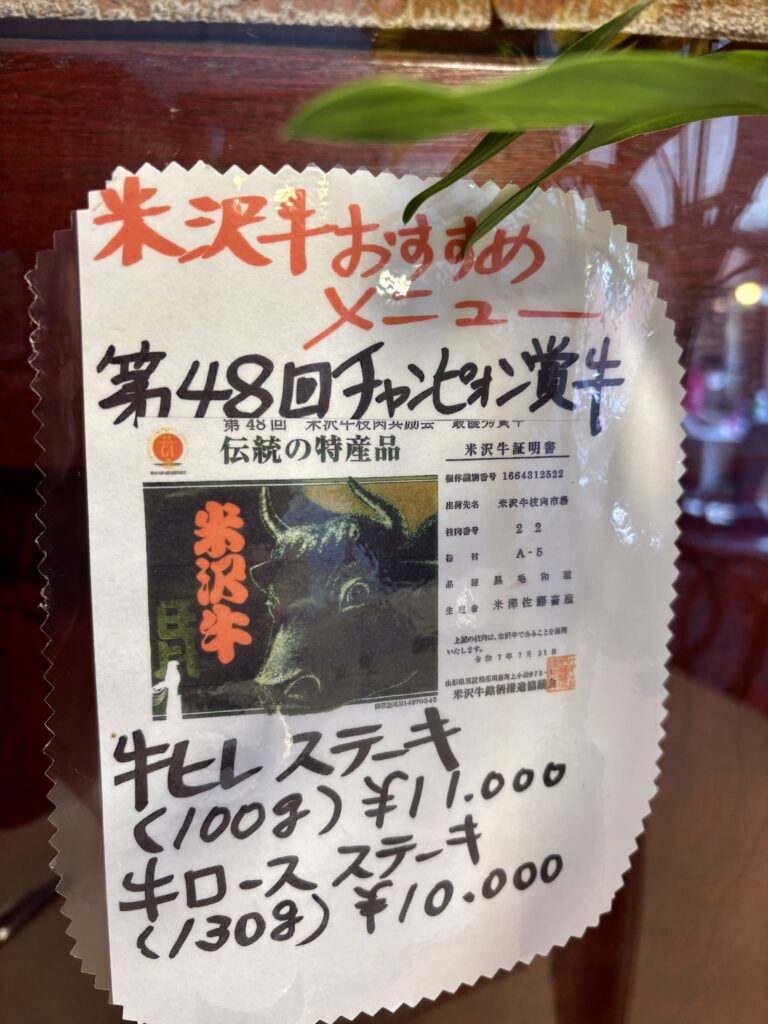 米沢牛おすすめ
メニュー
第48回チャンピオン賞牛
第48回 米沢牛枝肉共励会 最優秀賞牛
伝統の特産品
米沢牛証明書
個体識別番号 1664312522
出荷先名 米沢牛枝肉市場
枝肉番号 22
格付 A-5
品種 黒毛和種
生産者 米澤佐藤畜産
上記の枝肉は、米沢牛であることを証明
いたします。
令和7年7月31日
米沢牛銘柄推進協議会
米沢牛
牛ヒレ ステーキ
(100g) ¥11.000
牛ロース ステーキ
(130g) ¥10.000